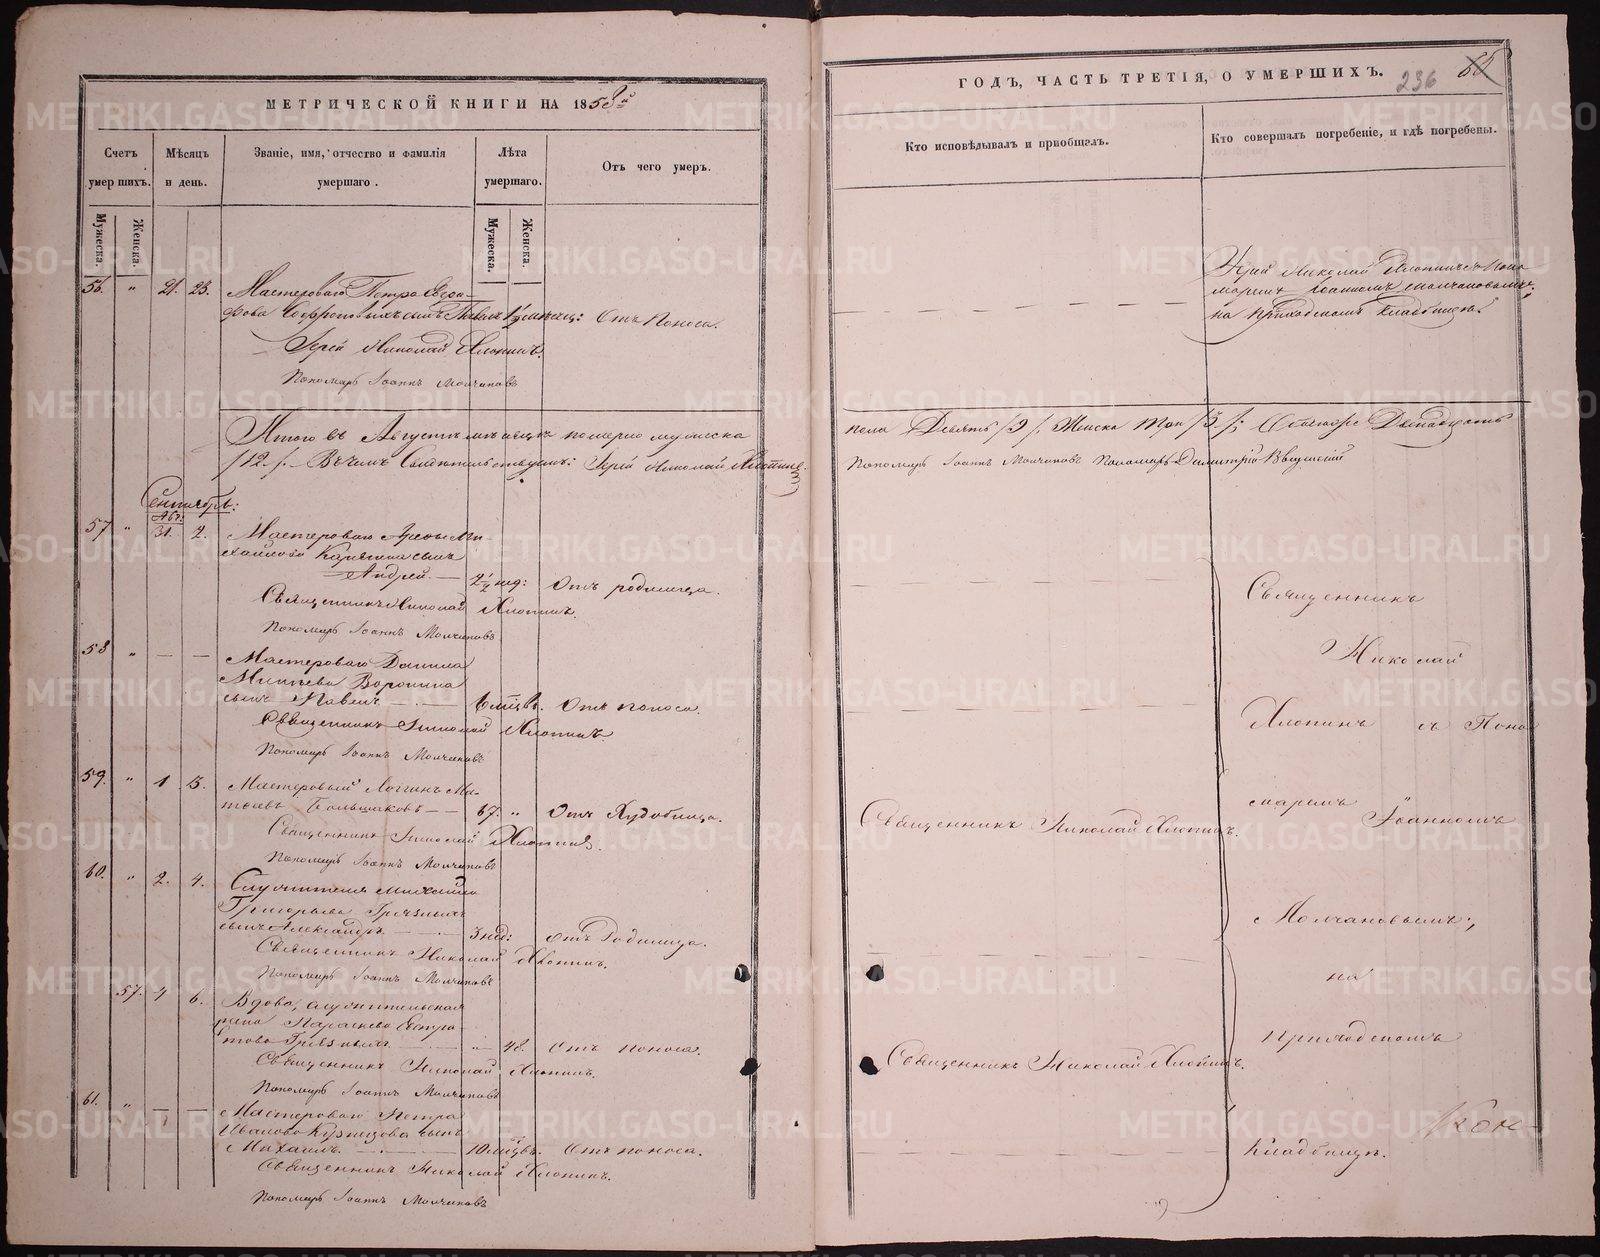 МЕТРИЧЕСКОЙ КНИГИ НА 1858й
Счетъ умершихъ.
Мѣсяцъ и день.
Званіе, имя, отчество и фамилія умершаго.
Лѣта умершаго.
Отъ чего умеръ.
Мужеска.
Женска.
Мужеска.
Женска.
56. " 21. 23. Мастероваго Петра
сынъ Отъ поноса.
Іерей Николай Хлопинъ.
Пономарь Іоаннъ Молчановъ
Итого въ Августѣ мѣсяцѣ померло мужеска
/12/. Въ чемъ свидѣтельствуемъ: Іерей Николай Хлопинъ.
Сентябрь:
Авг:
57 " 31. 2. Мастероваго Ми-
хайлова сынъ
Андрей. — 2 1/2 нед: Отъ родимца.
Священникъ Николай Хлопинъ.
Пономарь Іоаннъ Молчановъ
58 " — — Мастероваго Данила
Воронина
сынъ Павелъ — 6 мцвъ. Отъ поноса.
Священникъ Николай Хлопинъ.
Пономарь Іоаннъ Молчановъ
59. " 1 3. Мастеровый Логгинъ Ма-
твѣевъ Большаковъ — 67. " Отъ Худобища.
Священникъ Николай Хлопинъ.
Пономарь Іоаннъ Молчановъ
60. " 2. 4. Служителя Михаила
Григорьева Грязныхъ
сынъ Александръ. — 3 нед: отъ Родимца.
Священникъ Николай Хлопинъ.
Пономарь Іоаннъ Молчановъ
57. 4 6. Вдова, служительская
жена Параскева Евстра-
това Грязныхъ. " 48. отъ поноса.
Священникъ Николай Хлопинъ.
Пономарь Іоаннъ Молчановъ
61. " — — Мастероваго Петра
Иванова Кузнецова сынъ
Михаилъ. — 10 мцвъ. Отъ поноса.
Священникъ Николай Хлопинъ.
Пономарь Іоаннъ Молчановъ
ГОДЪ, ЧАСТЬ ТРЕТІЯ, О УМЕРШИХЪ.
236
65
Кто исповѣдывалъ и приобщалъ.
Кто совершалъ погребеніе, и гдѣ погребены.
Іерей Николай Хлопинъ съ Поно
маремъ Іоанномъ Молчановымъ;
на Приходскомъ кладбищѣ.
пола Девять /9/, Женска три /3/; Обоего Двѣнадцать
Пономарь Іоаннъ Молчановъ Пономарь Димитрій
Священникъ
Николай
Хлопинъ съ Поно
маремъ Іоанномъ
Священникъ Николай Хлопинъ.
Молчановымъ;
на
Приходскомъ
Священникъ Николай Хлопинъ.
кладбищѣ.
METRIKI.GASO-URAL.RU